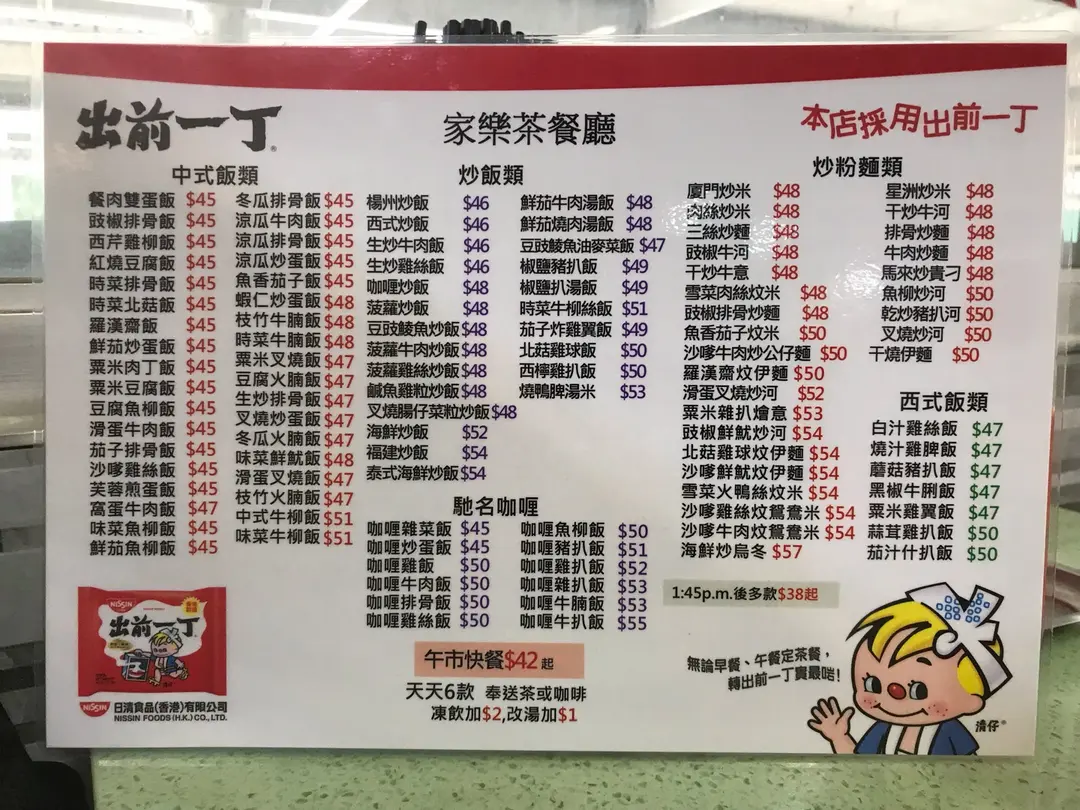 出前一丁
家樂茶餐廳
本店採用出前一丁
中式飯類
餐肉雙蛋飯 $45
豉椒排骨飯 $45
西芹雞柳飯 $45
紅燒豆腐飯 $45
時菜排骨飯 $45
時菜北菇飯 $45
羅漢齋飯 $45
鮮茄炒蛋飯 $45
粟米肉丁飯 $45
粟米豆腐飯 $45
豆腐魚柳飯 $45
滑蛋牛肉飯 $45
茄子排骨飯 $45
沙嗲雞絲飯 $45
芙蓉煎蛋飯 $45
窩蛋牛肉飯 $47
味菜魚柳飯 $45
鮮茄魚柳飯 $45
冬瓜排骨飯 $45
涼瓜牛肉飯 $45
涼瓜排骨飯 $45
涼瓜炒蛋飯 $45
魚香茄子飯 $45
蝦仁炒蛋飯 $48
枝竹牛腩飯 $48
時菜牛腩飯 $48
粟米叉燒飯 $47
豆腐火腩飯 $47
生炒排骨飯 $47
叉燒炒蛋飯 $47
冬瓜火腩飯 $47
味菜鮮魷飯 $48
滑蛋叉燒飯 $47
枝竹火腩飯 $47
中式牛柳飯 $51
味菜牛柳飯 $51
炒飯類
楊州炒飯 $46
西式炒飯 $46
生炒牛肉飯 $46
生炒雞絲飯 $46
咖喱炒飯 $48
菠蘿炒飯 $48
豆豉鯪魚炒飯 $48
菠蘿牛肉炒飯 $48
菠蘿雞絲炒飯 $48
鹹魚雞粒炒飯 $48
叉燒腸仔菜粒炒飯 $48
海鮮炒飯 $52
福建炒飯 $54
泰式海鮮炒飯 $54
鮮茄牛肉湯飯 $48
鮮茄燒肉湯飯 $48
豆豉鯪魚油麥菜飯 $47
椒鹽豬扒飯 $49
椒鹽扒湯飯 $49
時菜牛柳絲飯 $51
茄子炸雞翼飯 $49
北菇雞球飯 $50
西檸雞扒飯 $50
燒鴨脾湯米 $53
馳名咖喱
咖喱雜菜飯 $45
咖喱炒蛋飯 $45
咖喱雞飯 $50
咖喱牛肉飯 $50
咖喱排骨飯 $50
咖喱雞絲飯 $50
咖喱魚柳飯 $50
咖喱豬扒飯 $51
咖喱雞扒飯 $52
咖喱雜扒飯 $53
咖喱牛腩飯 $53
咖喱牛扒飯 $55
午市快餐$42起
天天6款 奉送茶或咖啡
凍飲加$2,改湯加$1
炒粉麵類
廈門炒米 $48
肉絲炒米 $48
三絲炒麵 $48
豉椒牛河 $48
干炒牛意 $48
雪菜肉絲炆米 $48
豉椒排骨炒麵 $48
魚香茄子炆米 $50
沙嗲牛肉炒公仔麵 $50
羅漢齋炆伊麵 $50
滑蛋叉燒炒河 $52
粟米雜扒燴意 $53
豉椒鮮魷炒河 $54
北菇雞球炆伊麵 $54
沙嗲鮮魷炆伊麵 $54
雪菜火鴨絲炆米 $54
沙嗲雞絲炆鴛鴦米 $54
沙嗲牛肉炆鴛鴦米 $54
海鮮炒烏冬 $57
星洲炒米 $48
干炒牛河 $48
排骨炒麵 $48
牛肉炒麵 $48
馬來炒貴刁 $48
魚柳炒河 $50
乾炒豬扒河 $50
叉燒炒河 $50
干燒伊麵 $50
西式飯類
白汁雞絲飯 $47
燒汁雞脾飯 $47
蘑菇豬扒飯 $47
黑椒牛脷飯 $47
粟米雞翼飯 $47
蒜茸雞扒飯 $50
茄汁什扒飯 $50
1:45p.m.後多款$38起
無論早餐、午餐定茶餐，
轉出前一丁實最啱!
清仔®
NISSIN
出前一丁
NISSIN 日清食品(香港)有限公司
NISSIN FOODS (H.K.) CO., LTD.